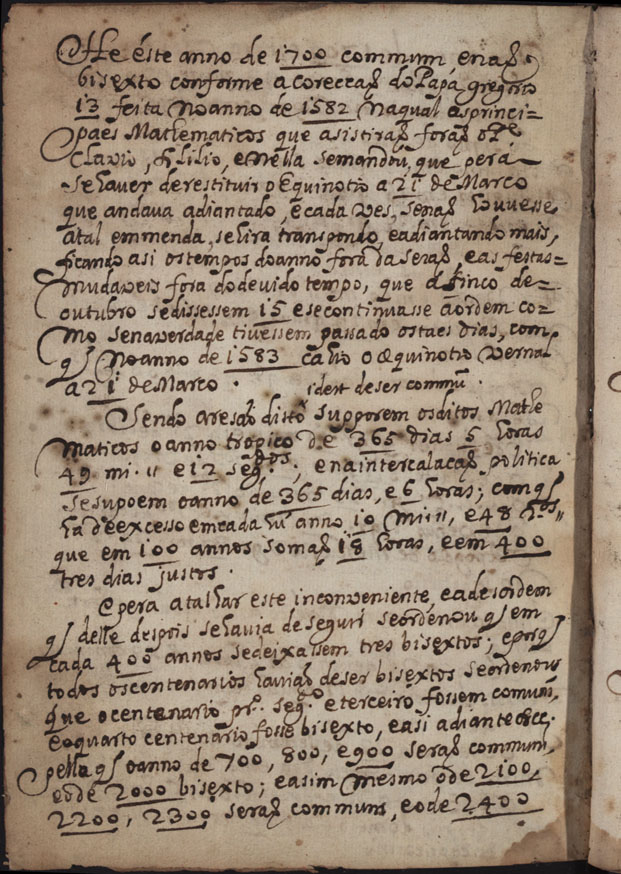 He éste anno de 1700 commum enaȝ
bisexto conforme a coreccaȝ do Papa gregorio
13 feita No anno de 1582 Naqual os princi-
paes Mathematicos que asistiraȝ foraȝ o Pe
Clavio, Lilio, e nella semandou, que pera
se haver de restituir o Equinotio a 21 de Março
que andava adiantado, e cada ves, senaȝ houvesse
atal emmenda, se hira transpondo, e adiantando mais,
ficando asi os tempos do anno fora da seraȝ, e as festas=
mudaveis fora do devido tempo, que a sinco de-
outubro sedissessem 15 e se continuasse a ordem co-
mo se na verdade tivessem passado os taes dias, com
qȝ No anno de 1583 cahio o æquinotio vernal
a 21 de Março . idest de ser commũ .
Sendo a resaȝ disto supporem os ditos Mathe
maticos o anno tropico de 365 dias 5 horas
49 mi.ˢ e 12 seg.dos ; e na intercalacaȝ politica
se supoem o anno de 365 dias, e 6 horas; com qȝ
ha de excesso em cada hũ anno 10 mi.ˢ, e 48 2.os
que em 100 annos somaȝ 18 horas, e em 400
tres dias justos .
E pera atalhar este inconveniente, e a desordem
qȝ delle despois se havia de seguir se ordenou qȝ em
cada 400 annos se deixassem tres bisextos; e porqȝ
todos os centenarios haviaȝ de ser bisextos se ordenou
que o centenario pr.º seg.º e terceiro fossem comuns,
e o quarto centenario fosse bisexto, e asi adiante &c.
pella qȝ o anno de 700, 800, e 900 seraȝ communs,
e o de 2000 bisexto; e asim mesmo o de 2100,
2200, 2300 seraȝ communs, e o de 2400